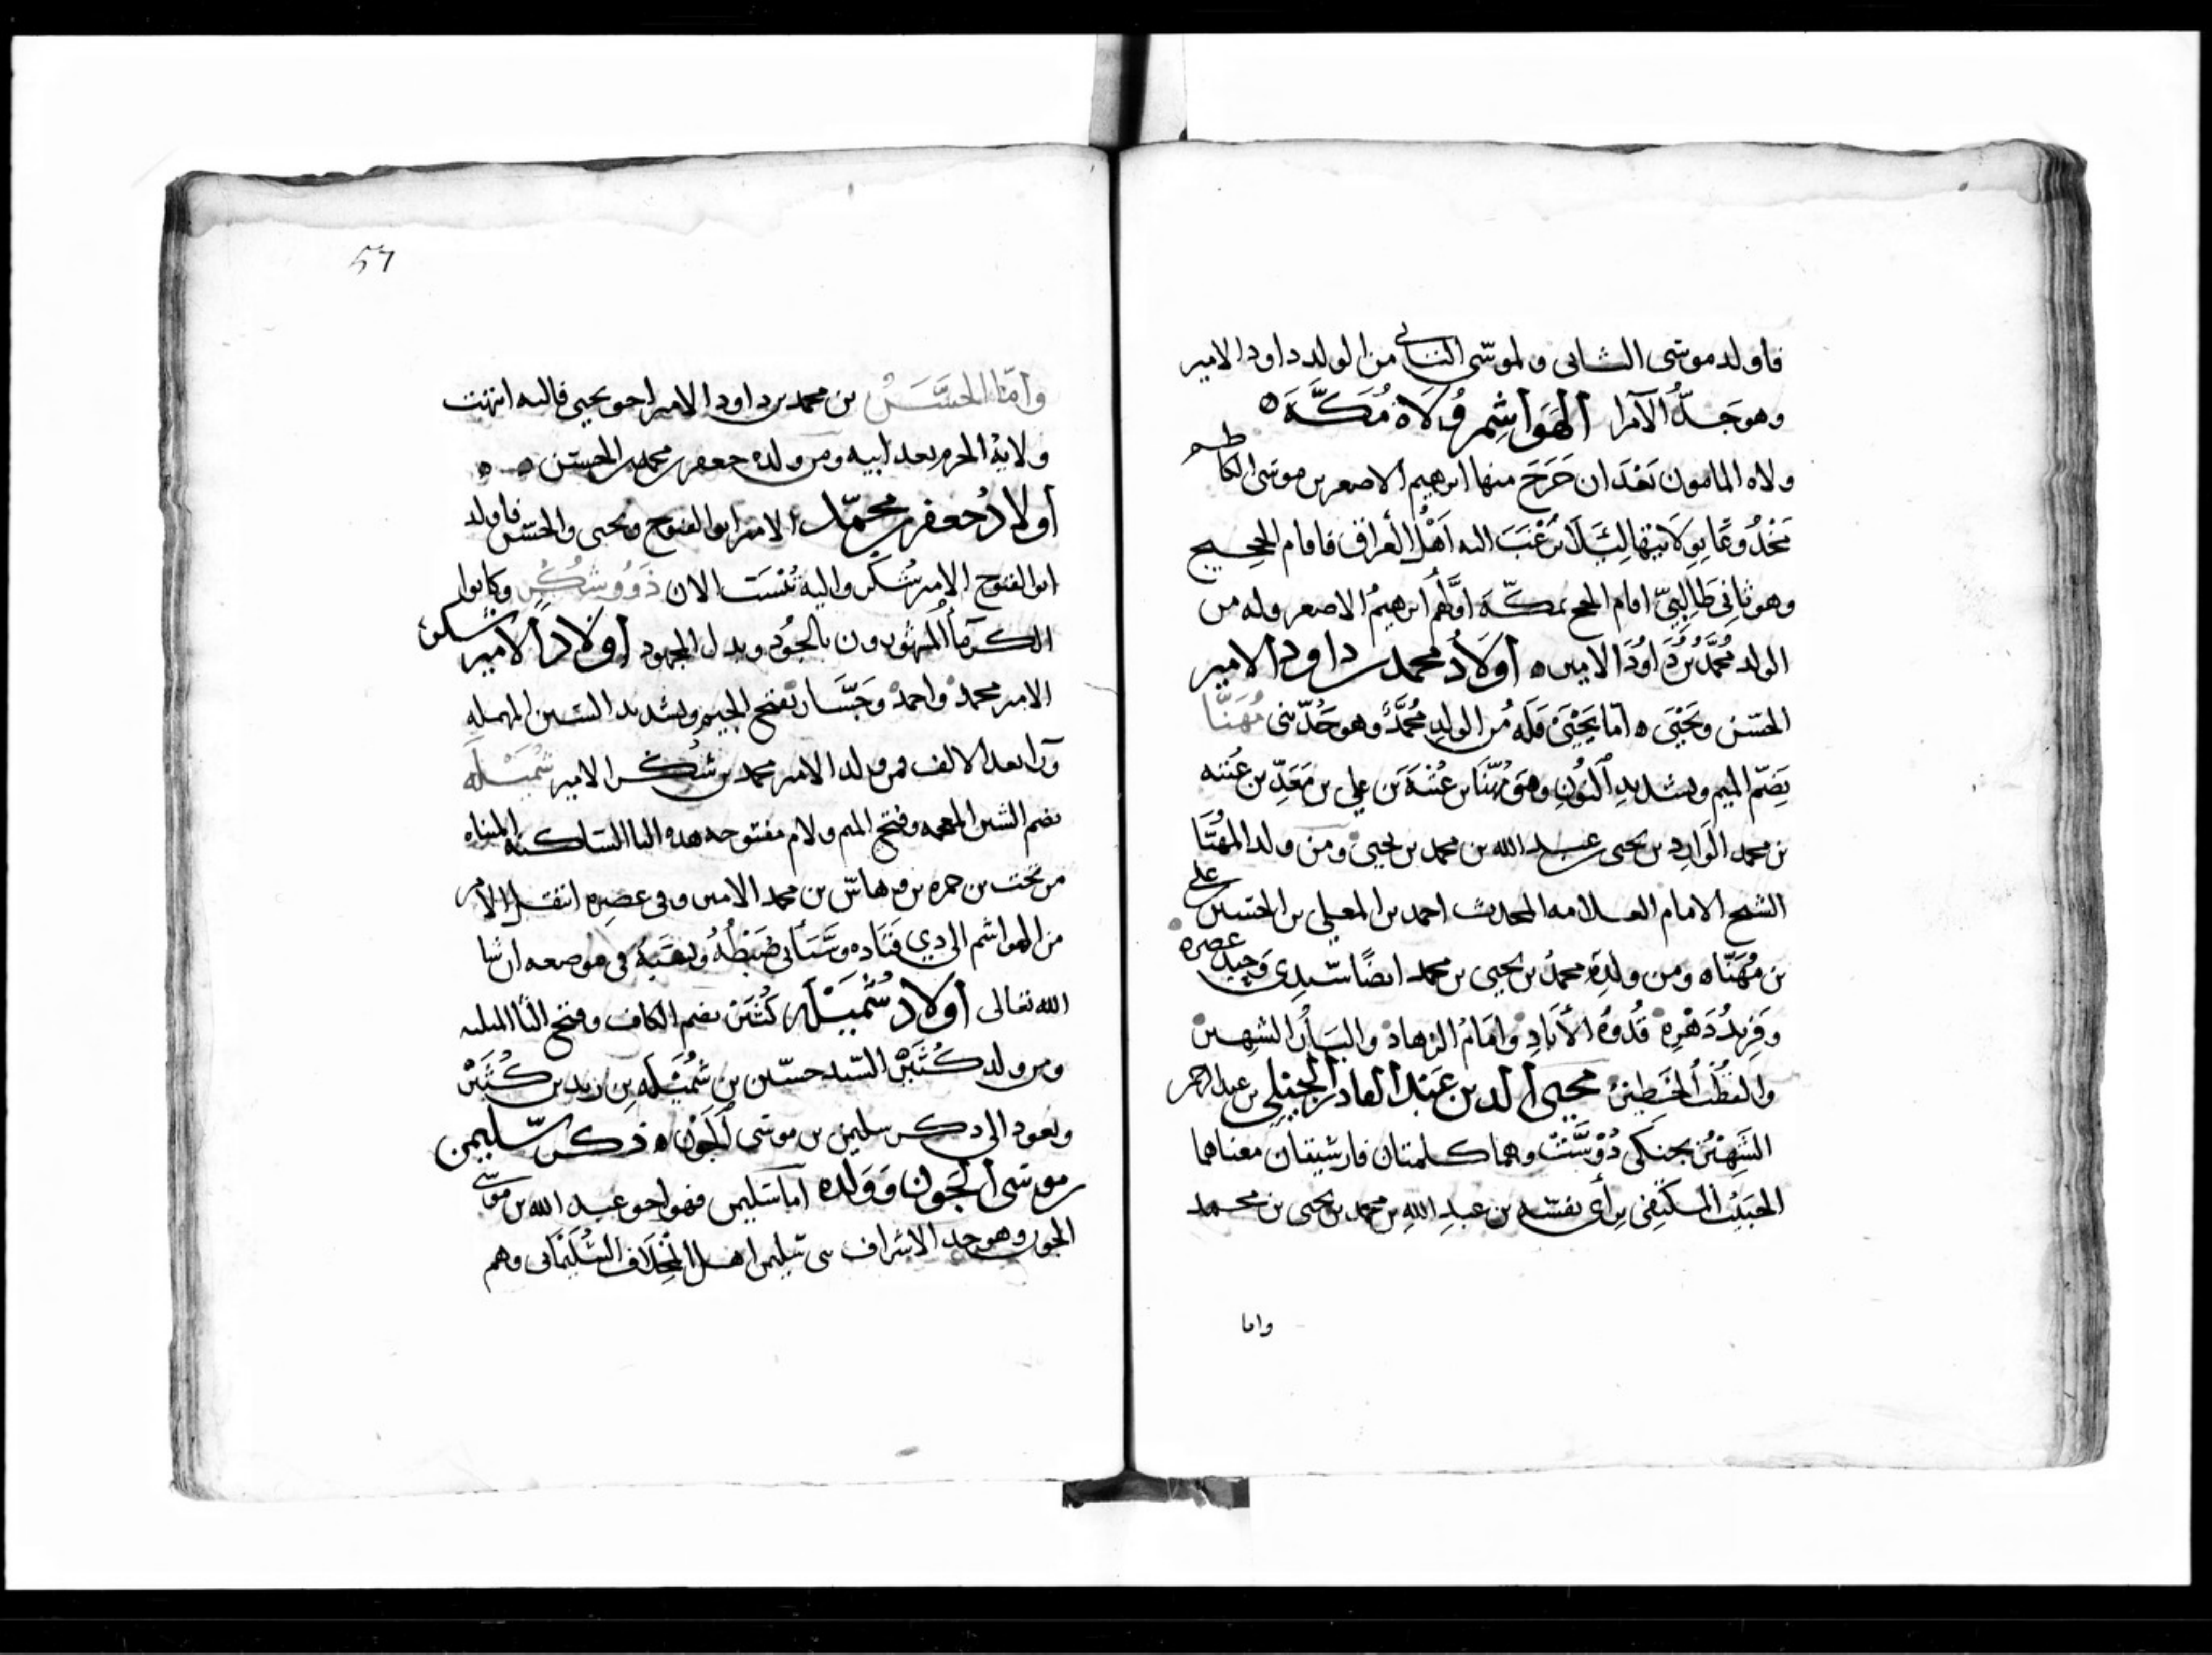 فاولد موسى الثانى ولموسى الثانى من الولد داود الامير
وهو جد الامرا الهواشم ولاة مكة ه
ولاه المامون بعد ان خرج منها ابرهيم الاصغر بن موسى الكاظم
بولايتها ليلا اليه اهل العراق فاقام الحجيج
وهو ثانى طالبى اقام الحج بمكة اولهم ابرهيم الاصغر وله من
الولد محمد بن داود الامير ه اولاد محمد بن داود الامير
الحسن ويحيى ه اما يحيى فله من الولد محمد وهو جد بنى مهنا
بضم الميم وبتشديد النون وهو مهنا بن عتبة بن على بن معد بن عتبه
بن محمد الوارد بن يحيى بن عبد الله بن محمد بن يحيى ومن ولد المهنا
الشيخ الامام العلامه المحدث احمد بن المعلى بن الحسين بن على
بن مهنا ه ومن ولده محمد بن يحيى بن محمد ايضا سيدى وحيد عصره
وفريد دهره قدوة وامام الزهاد الشهير
والقطب محيى الدين عبد القادر الجيلى بن عبد الرحمن
الشهير بجنكى دوست وهما كلمتان فارسيتان معناهما
بن عبد الله بن محمد بن يحيى بن محمد
واما
57
واما الحسن بن محمد بن داود الامير اخو يحيى فاليه انتهت
ولاية الحرم بعد ابيه ومن ولده جعفر بن محمد بن الحسن ه ه
اولاد جعفر بن محمد الامير ابو الفتوح ويحيى والحسن فاولد
ابو الفتوح الامير شكر واليه تنسب الان ذوو شكر وكانوا
الكرما المشهورون بالجود وبذل المجهود اولاد الامير شكر
الامير محمد واحمد وجسار بفتح الجيم وتشديد السين المهمله
ورا بعد الالف فمن ولد الامير محمد بن شكر الامير شميله
بضم الشين المعجمه وفتح الميم ولام مفتوحه بعد اليا الساكنة المثناه
من تحت بن حمزه بن وهاس بن محمد الامير وفى عصره انتقل الامر
من الهواشم الى ذوى قتاده وسياتى ضبطه ونسبه فى موضعه ان شا
الله تعالى اولاد شميله كثير بضم الكاف وفتح الثا المثلثه
ومن ولد كثير السيد حسين بن شميله بن زيد بن كثير
ونعود الى ذكر سليمن بن موسى الجون ه ذكر سليمن
بن موسى الجون وولده اما سليمن فهو اخو عبد الله بن موسى
الجون وهو جد الاشراف بنى سليمن اهل المخلاف السليمانى وهم